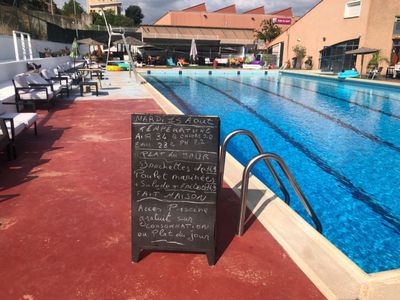 MARDI 15 Aout
TEMPERATURE
AIR 34
EAU. 28 PH 7.2
PLAT du JOUR
Brochettes de
Poulet marinées
+ Salade +
FAIT MAISON
Acces Piscine
gratuit sur
CONSOMMATION
ou Plat du jour